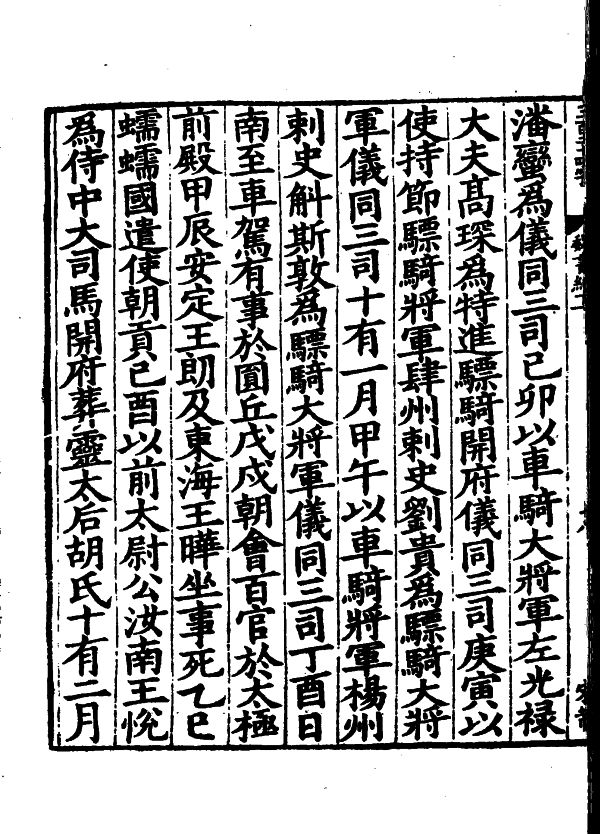 潘蠻爲儀同三司己卯以車騎大將軍左光祿
大夫髙琛爲特進驃騎開府儀同三司庚寅以
使持節驃騎將軍肆州剌史劉貴爲驃騎大將
軍儀同三司十有一月甲午以車騎將軍楊州
剌史斛斯敦爲驃騎大將軍儀同三司丁酉日
南至車駕有事於圓丘戊戌朝會百官於太極
前殿甲辰安定王朗及東海王曄坐事死乙巳
蠕蠕國遣使朝貢己酉以前太尉公汝南王悅
爲侍中大司馬開府葬靈太后胡氏十有二月